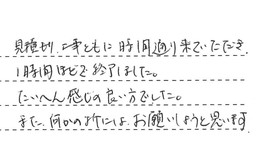 見積り、工事ともに時間通り来ていただき
1時間ほどで終了しました。
たいへん感じの良い方でした。
また、何かの時には、お願いしようと思います